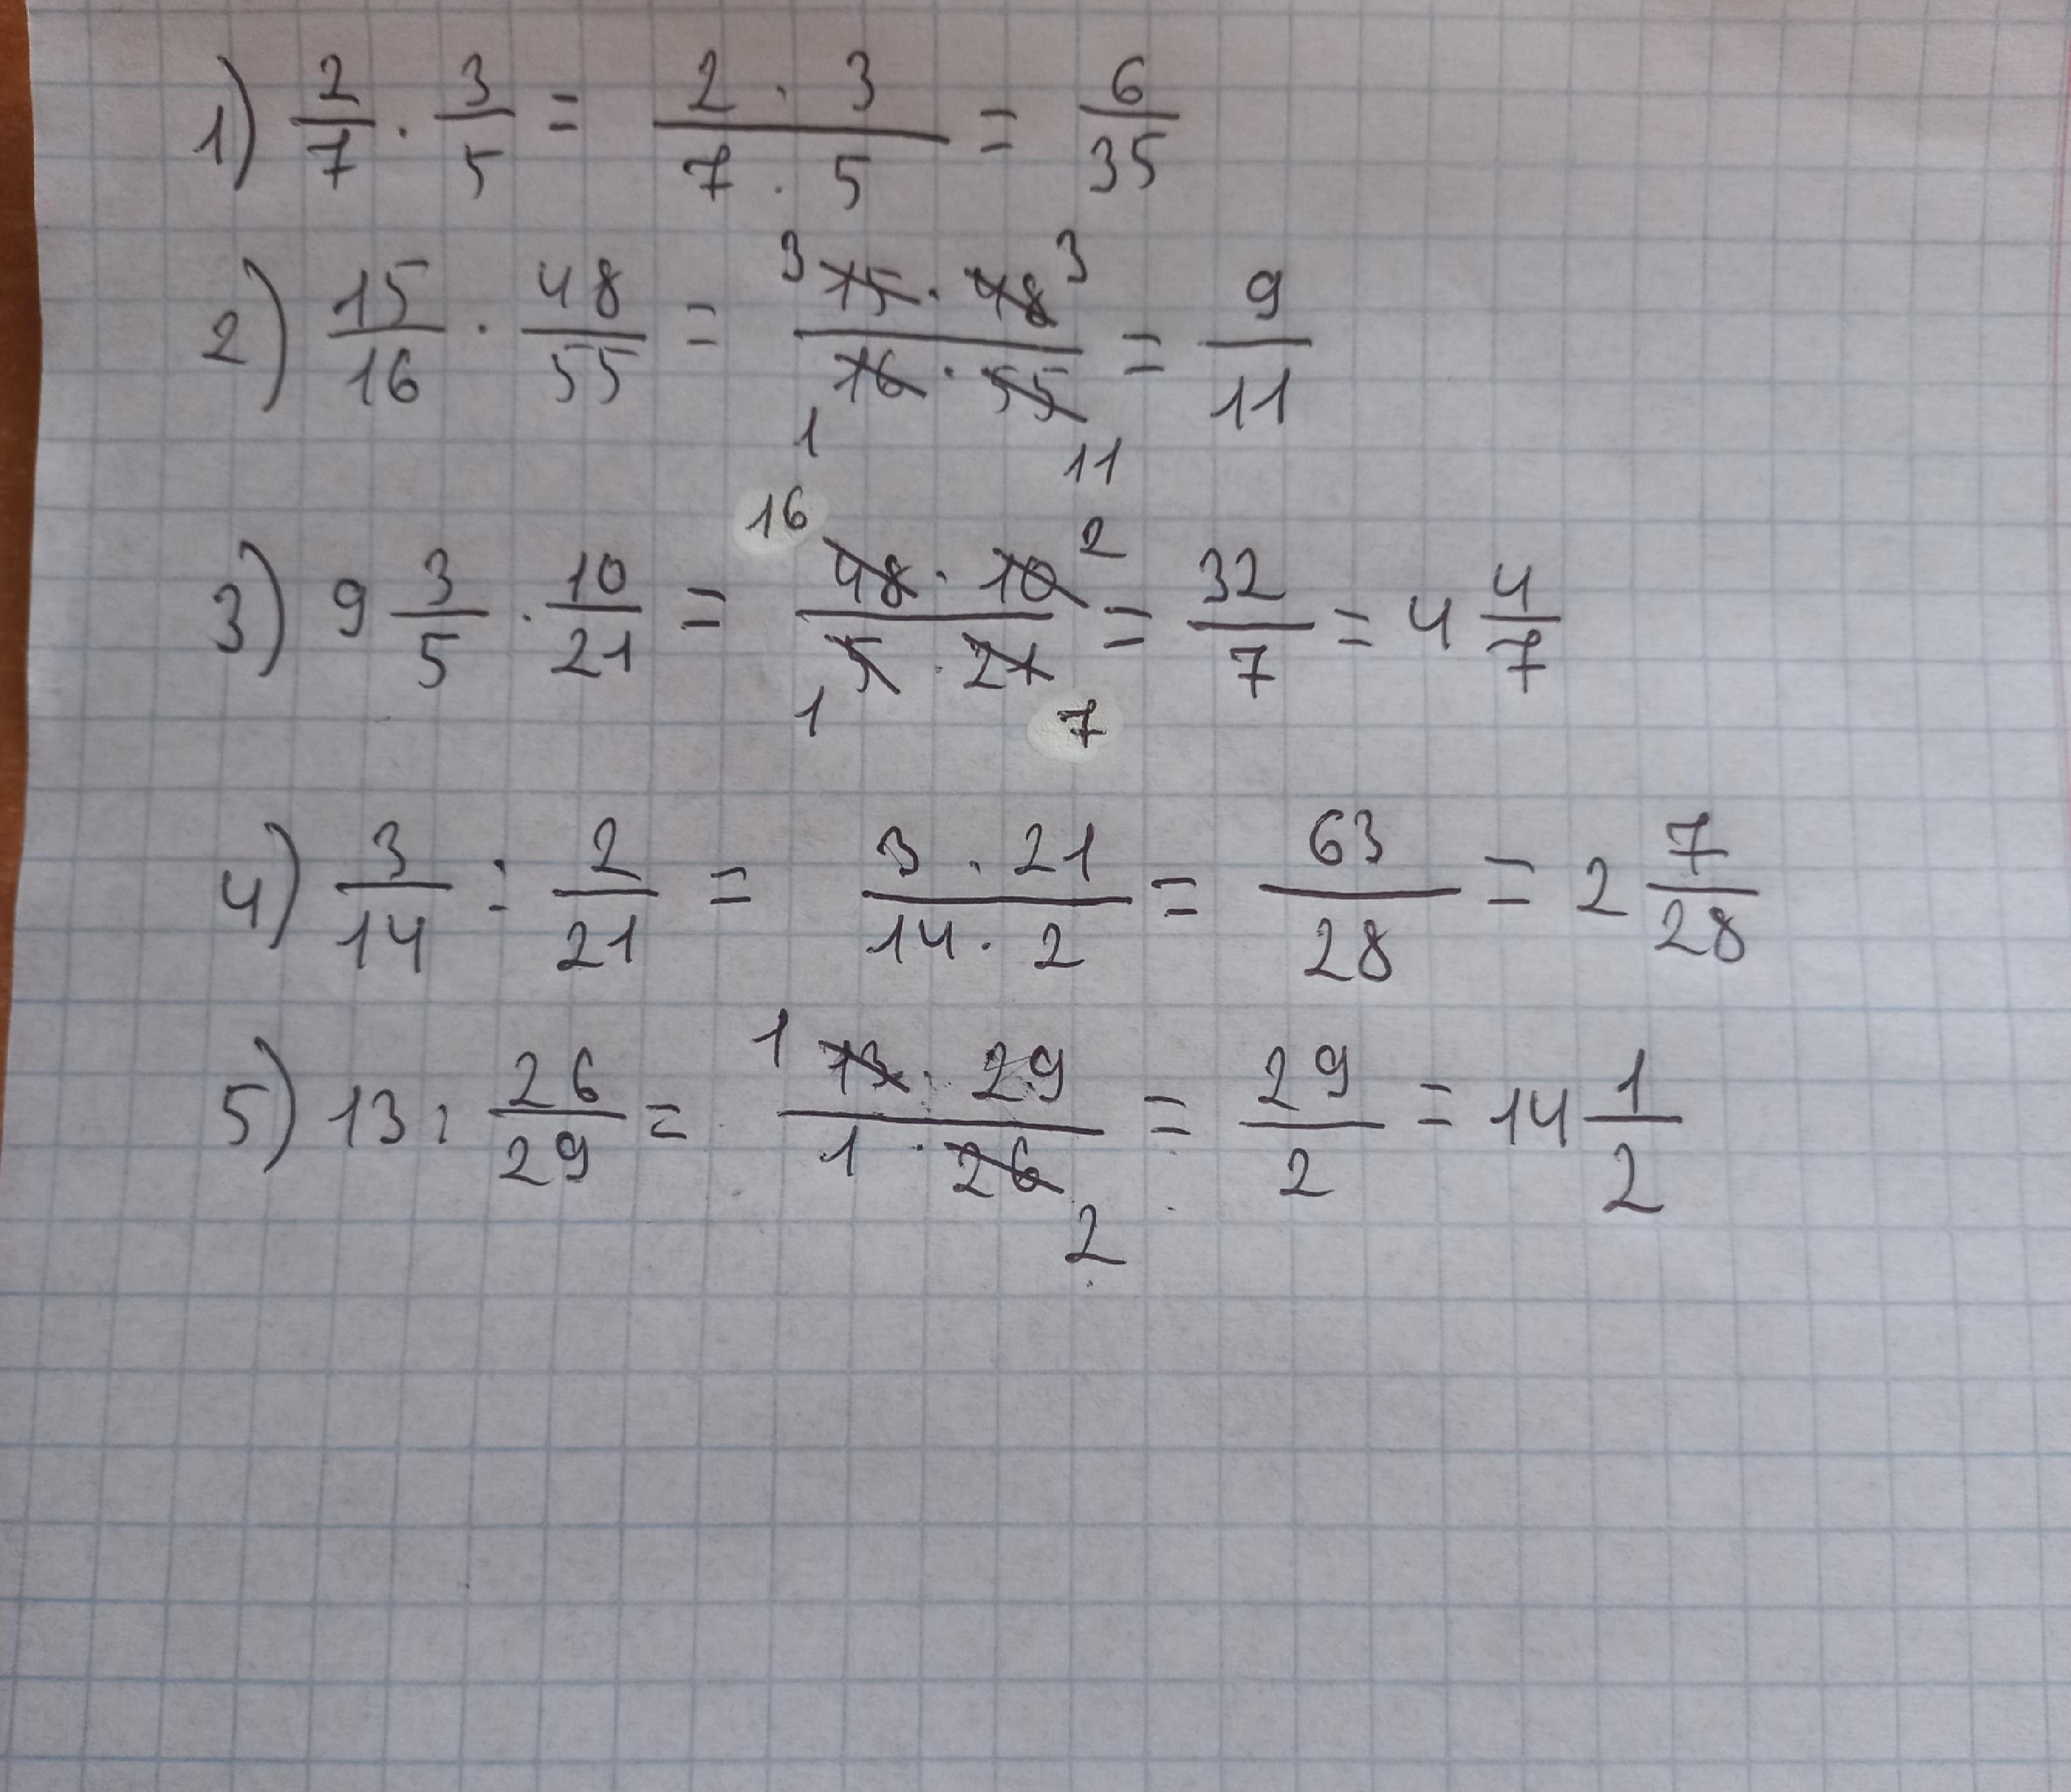 1) 2/7 · 3/5 = 2 · 3 / 7 · 5 = 6/35
2) 15/16 · 48/55 = 3 15 · 48 3 / 16 · 55 1 11 = 9/11
3) 9 3/5 · 10/21 = 16 48 · 10 2 / 5 · 21 1 7 = 32/7 = 4 4/7
4) 3/14 : 2/21 = 3 · 21 / 14 · 2 = 63/28 = 2 7/28
5) 13 : 26/29 = 1 13 · 29 / 1 · 26 2 = 29/2 = 14 1/2